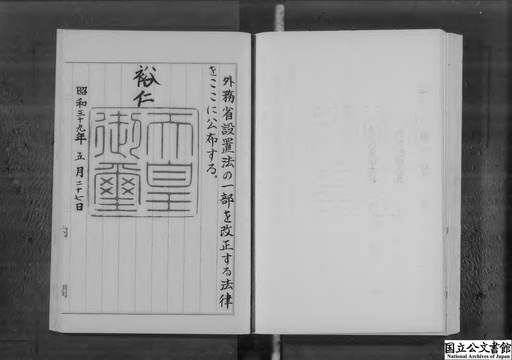 外務省設置法の一部を改正する法律
をここに公布する。
裕仁
天皇
御璽
昭和三十九年五月二十七日
国立公文書館
National Archives of Japan